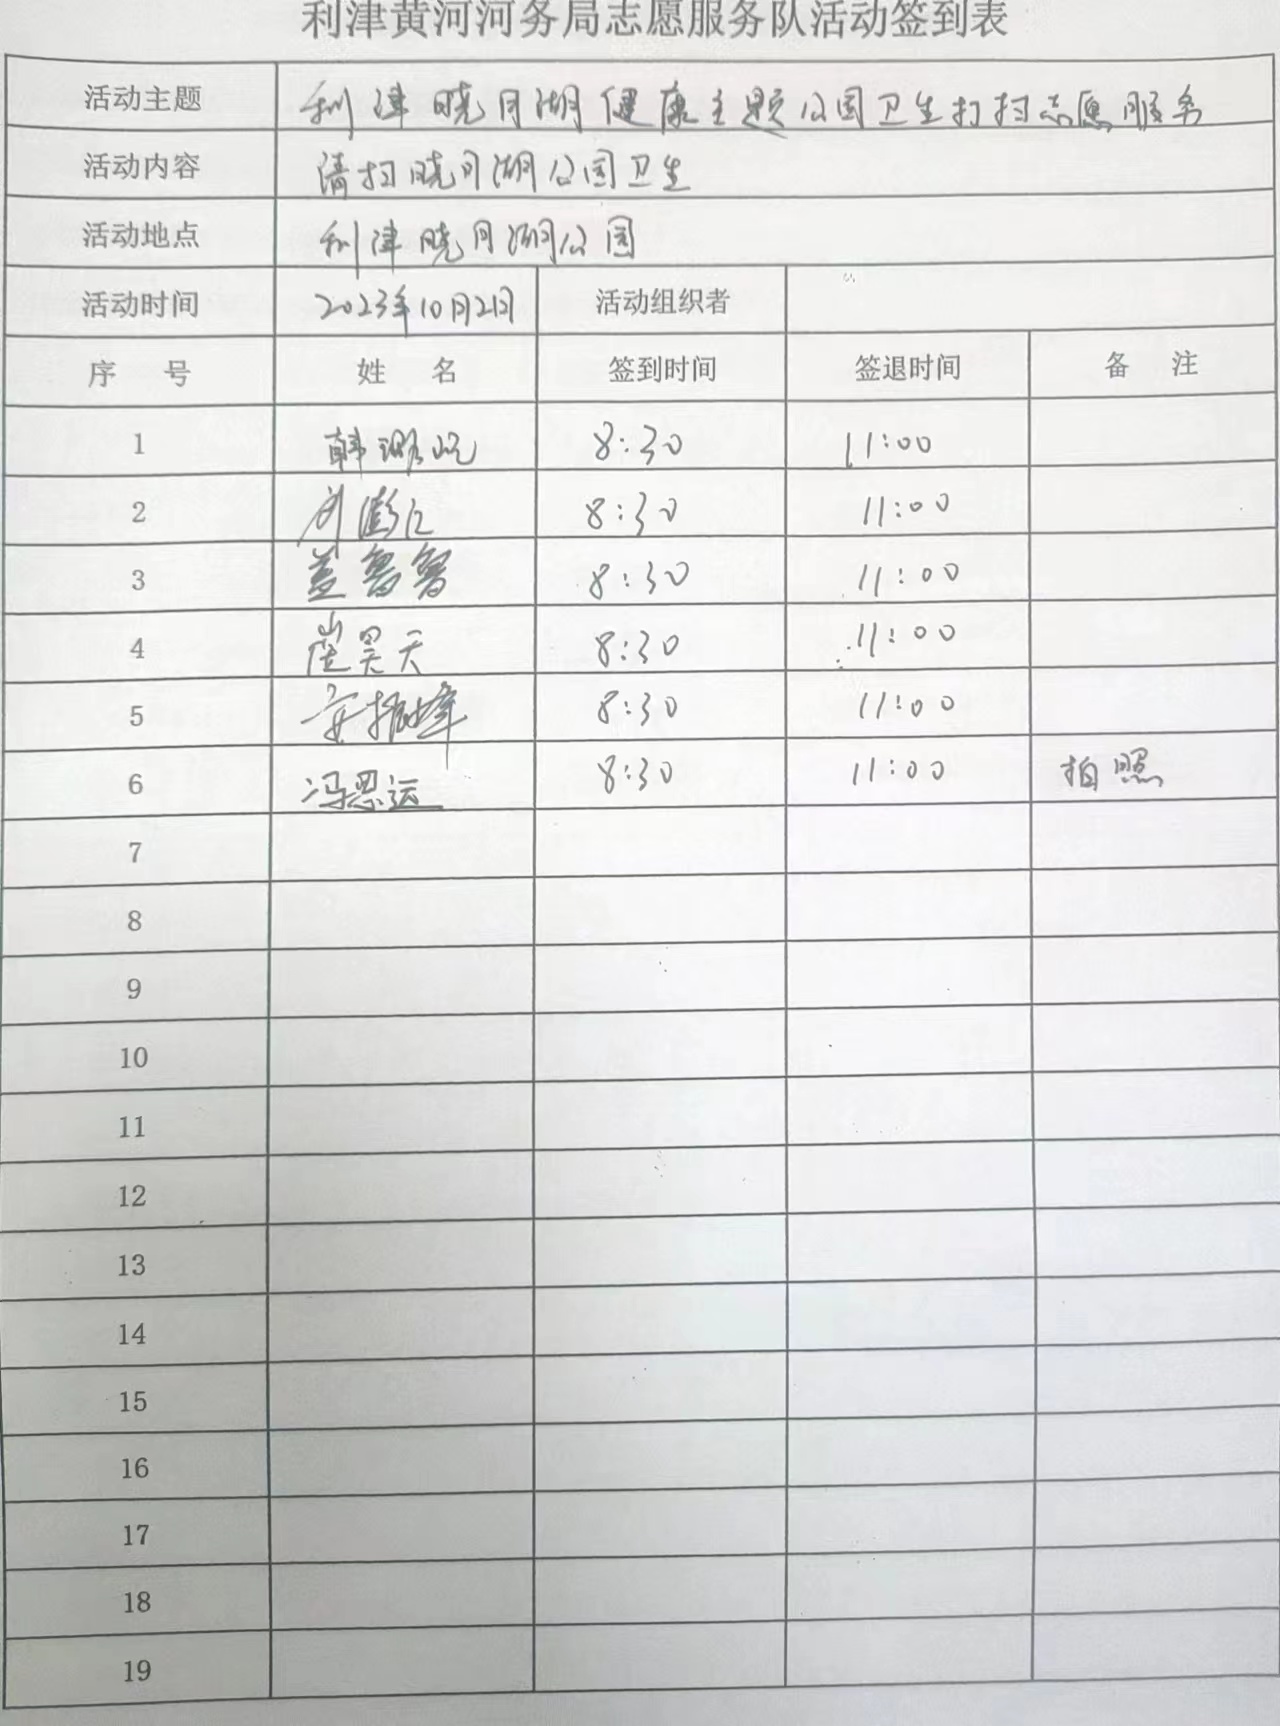 利津黄河河务局志愿服务队活动签到表
活动主题 利津晓月湖健康主题公园卫生打扫志愿服务
活动内容 清扫晓月湖公园卫生
活动地点 利津晓月湖公园
活动时间 2023年10月21日 活动组织者
序 号 姓 名 签到时间 签退时间 备 注
1 韩 8:30 11:00
2 8:30 11:00
3 盖鲁鲁 8:30 11:00
4 崔昊天 8:30 11:00
5 安振峰 8:30 11:00
6 冯恩运 8:30 11:00 拍照
7
8
9
10
11
12
13
14
15
16
17
18
19